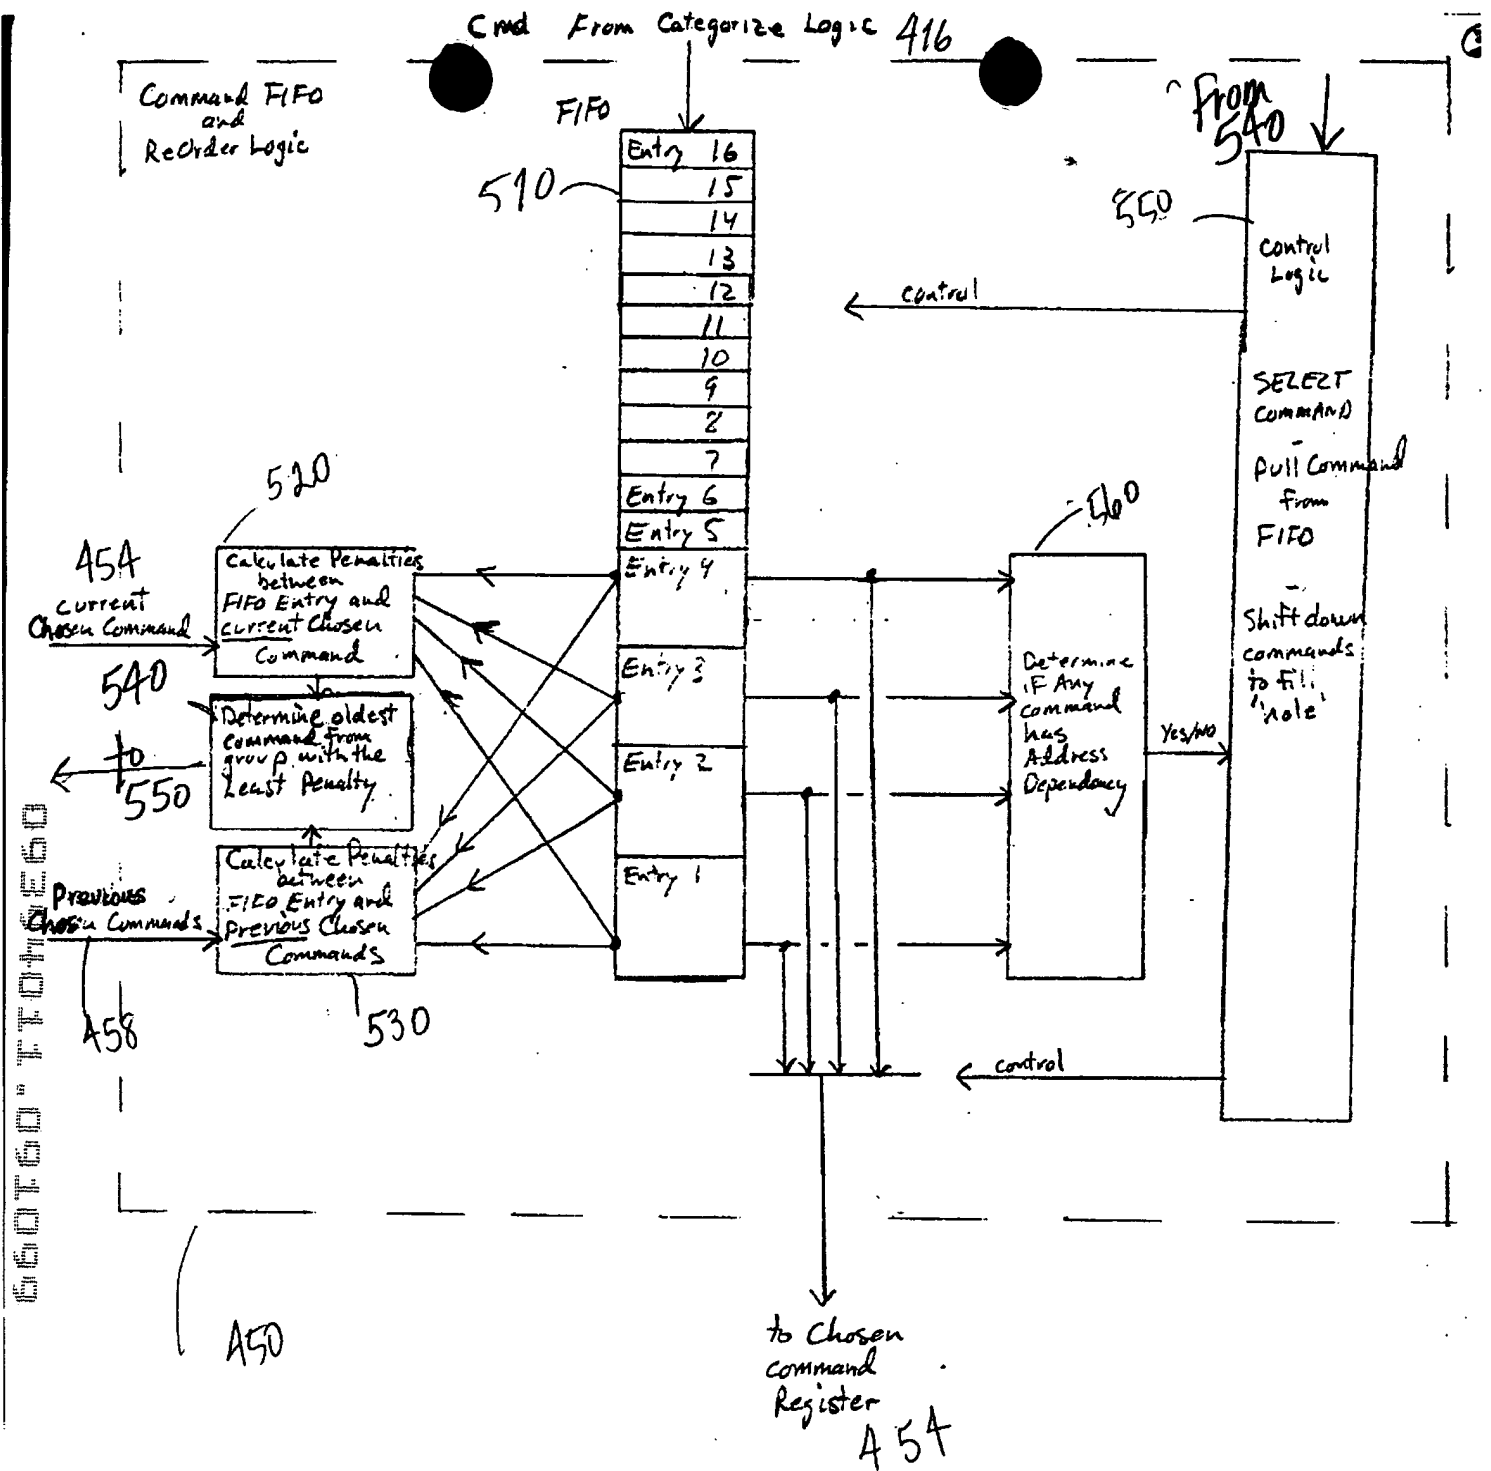 Cmd From Categorize Logic 416
Command FIFO
and
ReOrder Logic
FIFO
From
540
Entry 16
15
14
13
12
11
10
9
8
7
Entry 6
Entry 5
Entry 4
Entry 3
Entry 2
Entry 1
510
550
Control
Logic
SELECT
COMMAND
-
Pull Command
from
FIFO
-
Shift down
commands
to fill
"hole"
control
520
454
current
Chosen Command
Calculate Penalties
between
FIFO Entry and
current Chosen
Command
540
Determine oldest
command from
group with the
Least Penalty
to
550
Calculate Penalties
between
FIFO Entry and
Previous Chosen
Commands
Previous
Chosen Commands
458
530
560
Determine
if Any
command
has
Address
Dependency
Yes/No
control
450
to Chosen
command
Register
454